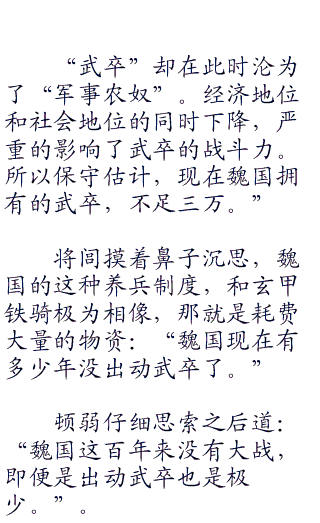 “武卒”却在此时沦为
了“军事农奴”。经济地位
和社会地位的同时下降，严
重的影响了武卒的战斗力。
所以保守估计，现在魏国拥
有的武卒，不足三万。”
将闾摸着鼻子沉思，魏
国的这种养兵制度，和玄甲
铁骑极为相像，那就是耗费
大量的物资：“魏国现在有
多少年没出动武卒了。”
顿弱仔细思索之后道：
“魏国这百年来没有大战，
即便是出动武卒也是极
少。”。